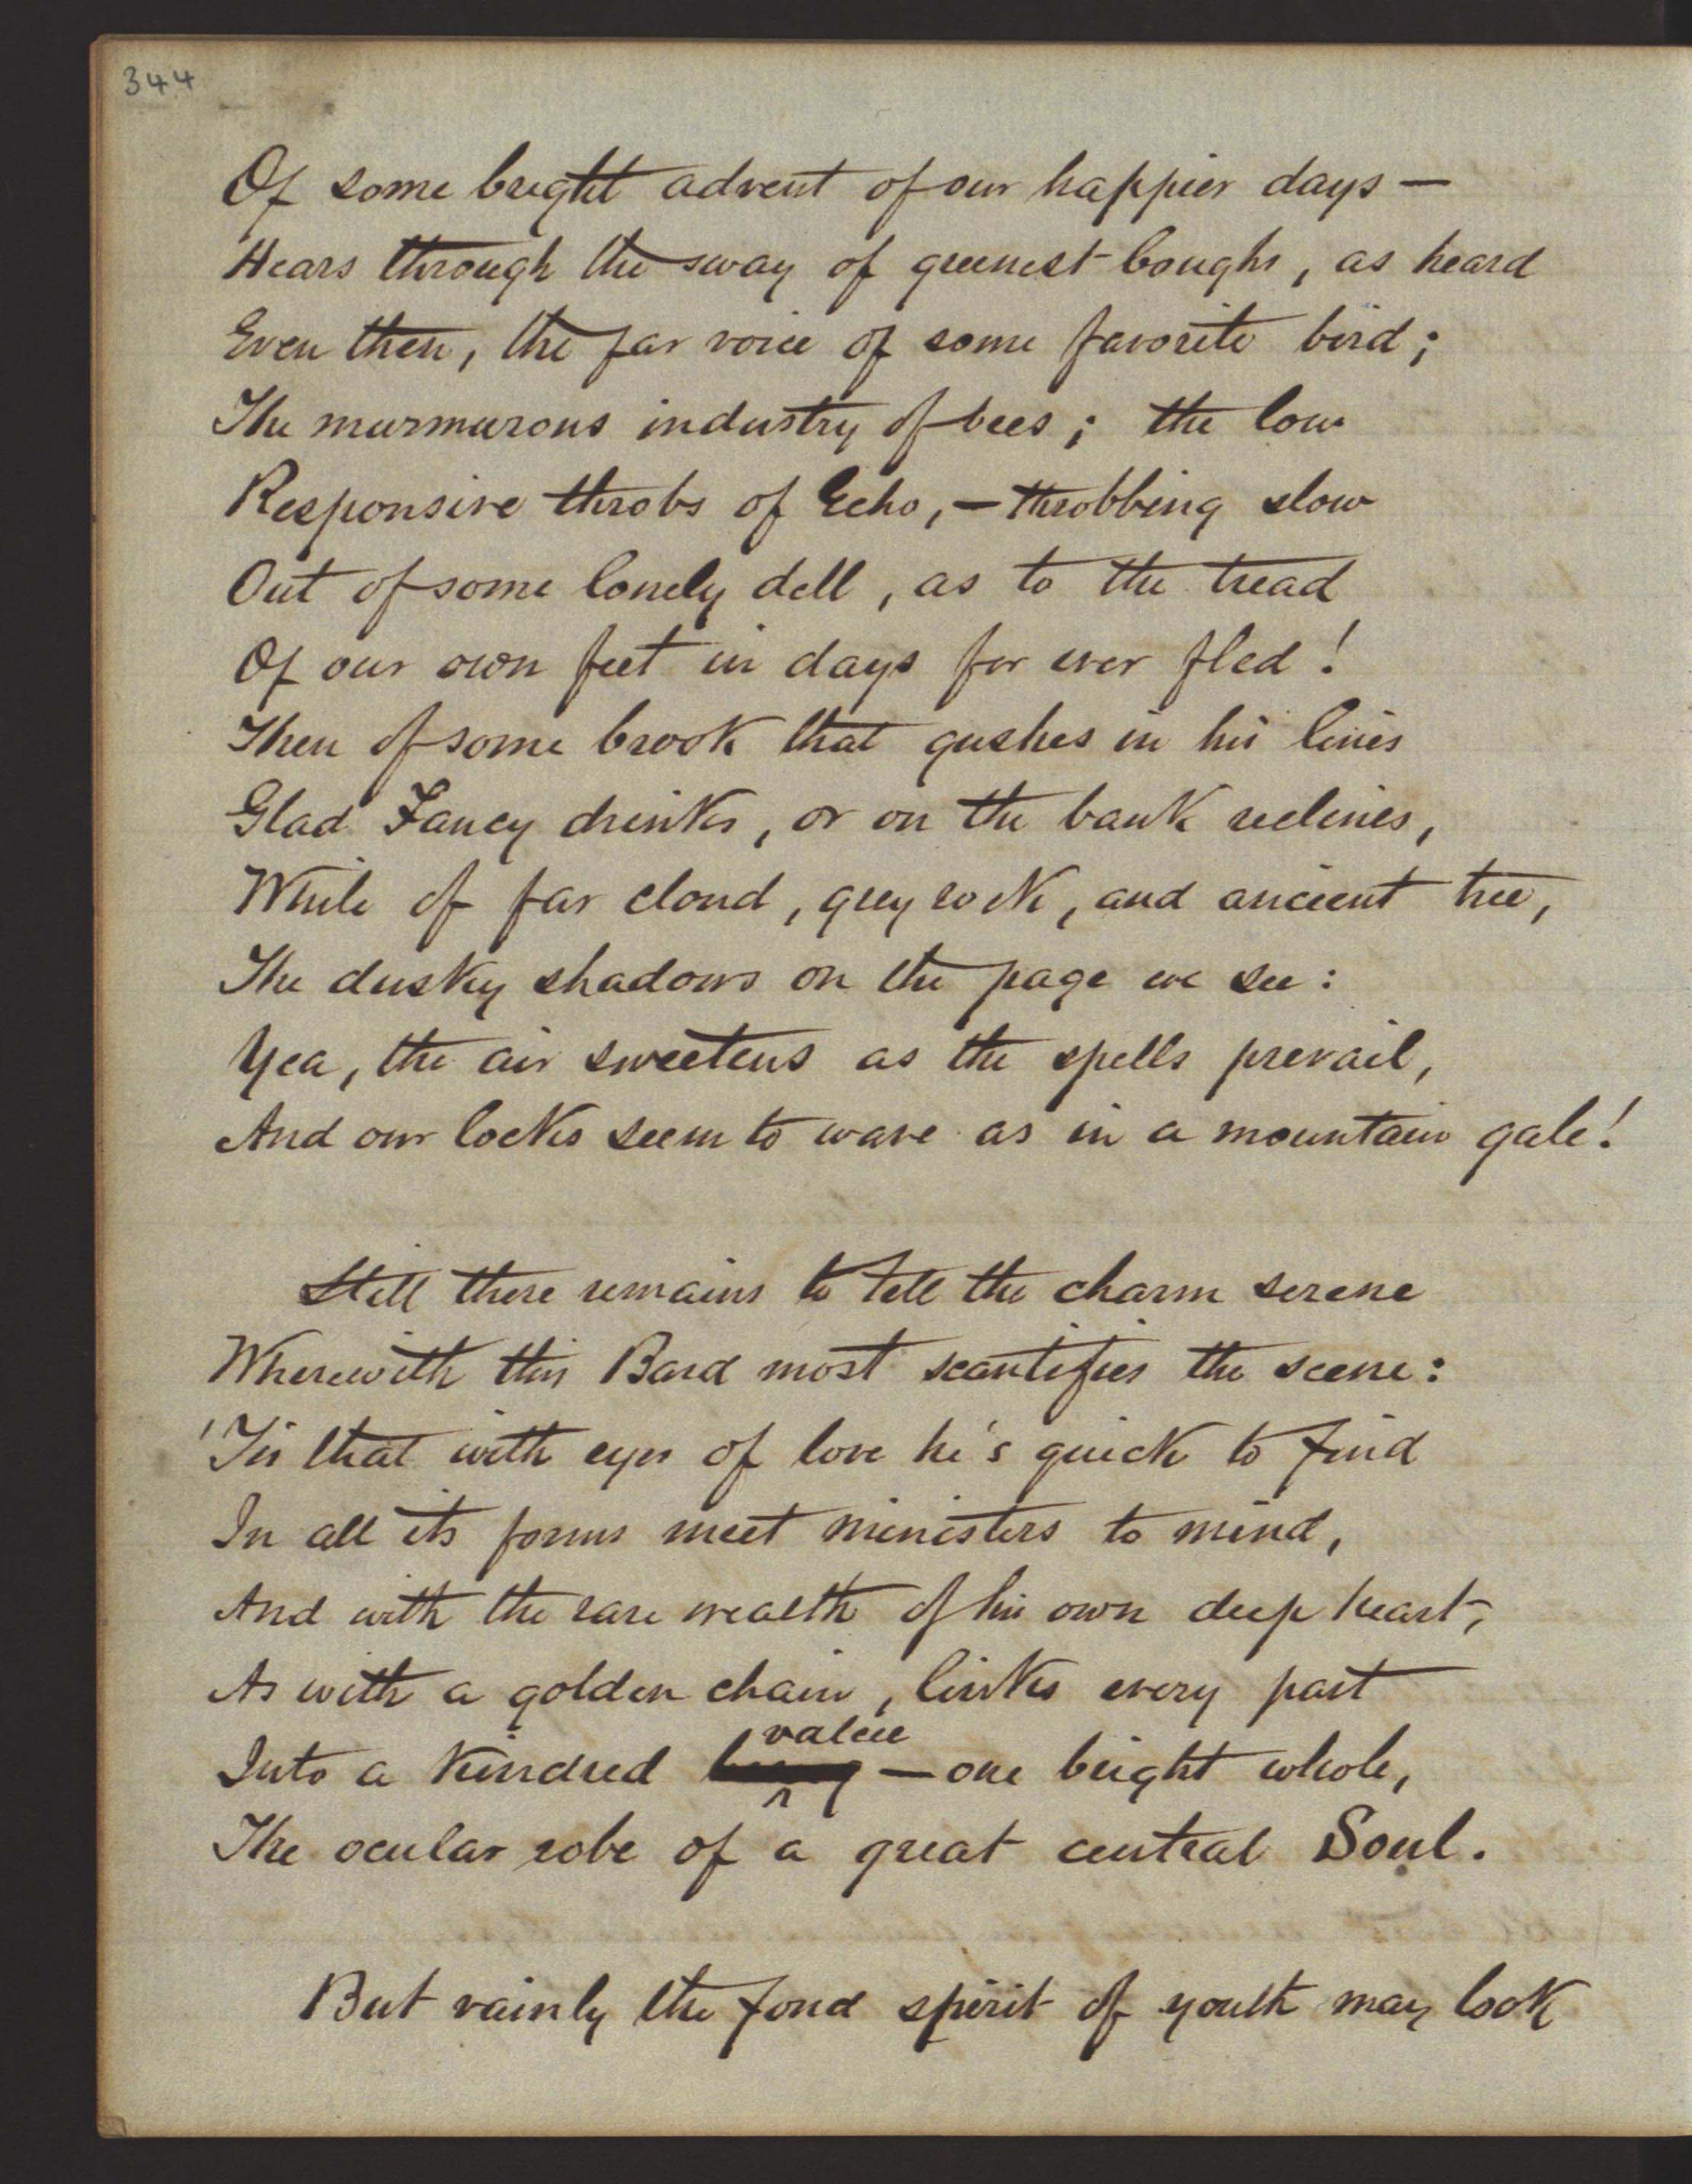 344
Of some bright advent of our happier days —
Hears through the sway of greenest boughs, as heard
Even then, the far voice of some favorite bird;
The murmurous industry of bees; the low
Responsive throbs of Echo, — throbbing slow
Out of some lonely dell, as to the tread
Of our own feet in days for ever fled!
Then of some brook that gushes in his lines
Glad Fancy drinks, or on the bank reclines,
While of far cloud, grey rock, and ancient tree,
The dusky shadows on the page we see:
Yea, the air sweetens as the spells prevail,
And our locks seem to wave as in a mountain gale!
Still there remains to tell the charm serene
Wherewith this Bard most scantifies the scene:
'Tis that with eyes of love he's quick to find
In all its forms meet ministers to mind,
And with the rare wealth of his own deep heart,
As with a golden chain, links every part
value
Into a kindred — one bright whole,
The ocular robe of a great central Soul.
But vainly the fond spirit of youth may look